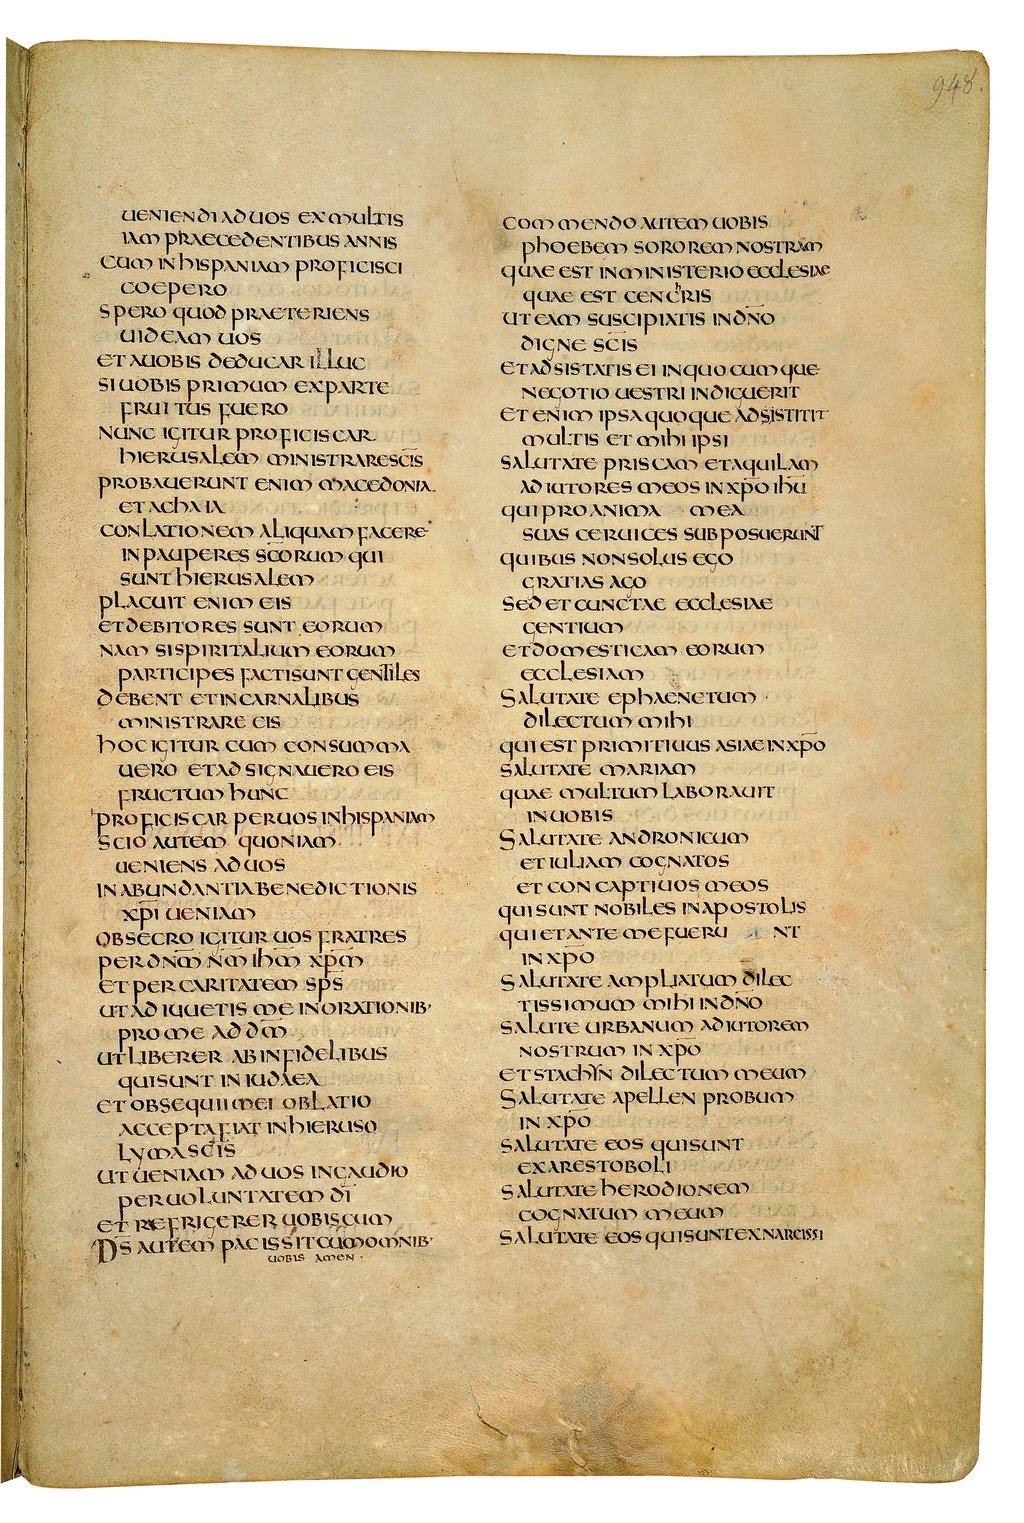 948.
ueniendi ad uos ex multis
iam praecedentibus annis
cum in hispaniam proficisci
coepero
spero quod praeteriens
uideam uos
et a uobis deducar illuc
si uobis primum ex parte
fruitus fuero
nunc igitur proficiscar
hierusalem ministrare sc̅is
probauerunt enim macedonia
et achaia
conlationem aliquam facere
in pauperes sc̅orum qui
sunt hierusalem
placuit enim eis
et debitores sunt eorum
nam si spiritalium eorum
participes facti sunt gentiles
debent et in carnalibus
ministrare eis
hoc igitur cum consumma
uero et adsignauero eis
fructum hunc
proficiscar per uos in hispaniam
scio autem quoniam
ueniens ad uos
in abundantia benedictionis
xp̅i ueniam
obsecro igitur uos fratres
per dn̅m n̅m ih̅m xp̅m
et per caritatem sp̅s
ut adiuuetis me in orationib·
pro me ad d̅m
ut liberer ab infidelibus
qui sunt in iudaea
et obsequii mei oblatio
accepta fiat in hieruso
lyma sc̅is
ut ueniam ad uos in gaudio
per uoluntatem d̅i
et refrigerer uobiscum
D̅s autem pacis sit cum omnib·
uobis amen ·
commendo autem uobis
phoebem sororem nostram
quae est in ministerio ecclesiae
quae est cenchris
ut eam suscipiatis in dn̅o
digne sc̅is
et adsistatis ei in quocumque
negotio uestri indiguerit
etenim ipsa quoque adsistitit
multis et mihi ipsi
salutate priscam et aquilam
adiutores meos in xp̅o ih̅u
qui pro anima mea
suas ceruices subposuerunt
quibus non solus ego
gratias ago
sed et cunctae ecclesiae
gentium
et domesticam eorum
ecclesiam
Salutate ephaenetum
dilectum mihi
qui est primitiuus asiae in xp̅o
salutate mariam
quae multum laborauit
in uobis
Salutate andronicum
et iuliam cognatos
et concaptiuos meos
qui sunt nobiles in apostolis
qui et ante me fueru nt
in xp̅o
Salutate ampliatum dilec
tissimum mihi in dn̅o
salute urbanum adiutorem
nostrum in xp̅o
et stachyn dilectum meum
Salutate apellen probum
in xp̅o
salutate eos qui sunt
ex arestoboli
salutate herodionem
cognatum meum
salutate eos qui sunt ex narcissi